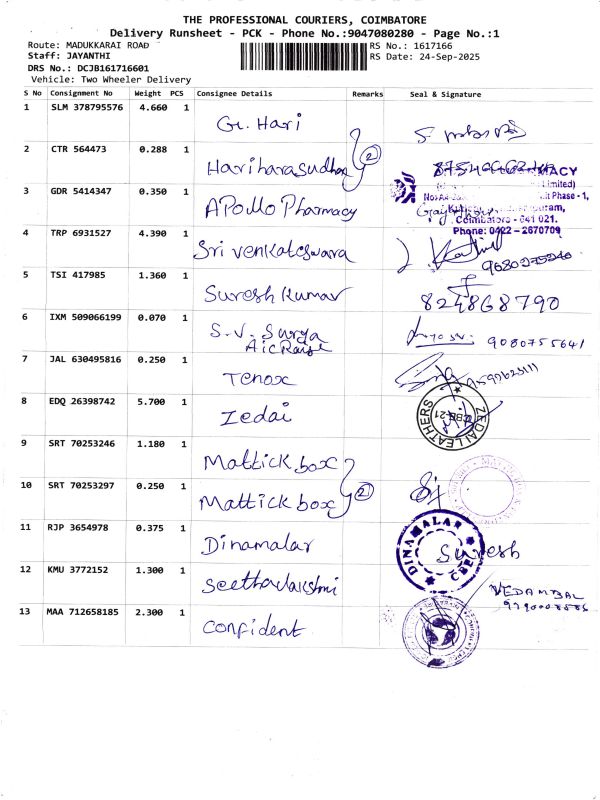 THE PROFESSIONAL COURIERS, COIMBATORE
Delivery Runsheet - PCK - Phone No.:9047080280 - Page No.:1
Route: MADUKKARAI ROAD
RS No.: 1617166
Staff: JAYANTHI
RS Date: 24-Sep-2025
DRS No.: DCJB161716601
Vehicle: Two Wheeler Delivery
S No Consignment No Weight PCS Consignee Details Remarks Seal & Signature
1 SLM 378795576 4.660 1 G. Hari
2 CTR 564473 0.288 1 Hariharasudhan 2
3 GDR 5414347 0.350 1 Apollo Pharmacy
MACY
Limited)
it Phase - 1,
Coimbatore - 641 021.
Phone: 0422 - 2670709
4 TRP 6931527 4.390 1 Sri venkateswara
5 TSI 417985 1.360 1 Suresh Kumar 824868790
6 IXM 509066199 0.070 1 S.V. Surya 9080755641
7 JAL 630495816 0.250 1 Tenox
8 EDQ 26398742 5.700 1 Zedai ZEDAI LEATHERS
9 SRT 70253246 1.180 1 Mattick box
10 SRT 70253297 0.250 1 Mattick box 2
11 RJP 3654978 0.375 1 Dinamalar DINAMALAR Suresh
12 KMU 3772152 1.300 1 Seethalakshmi VEDAMBAL
13 MAA 712658185 2.300 1 Confident